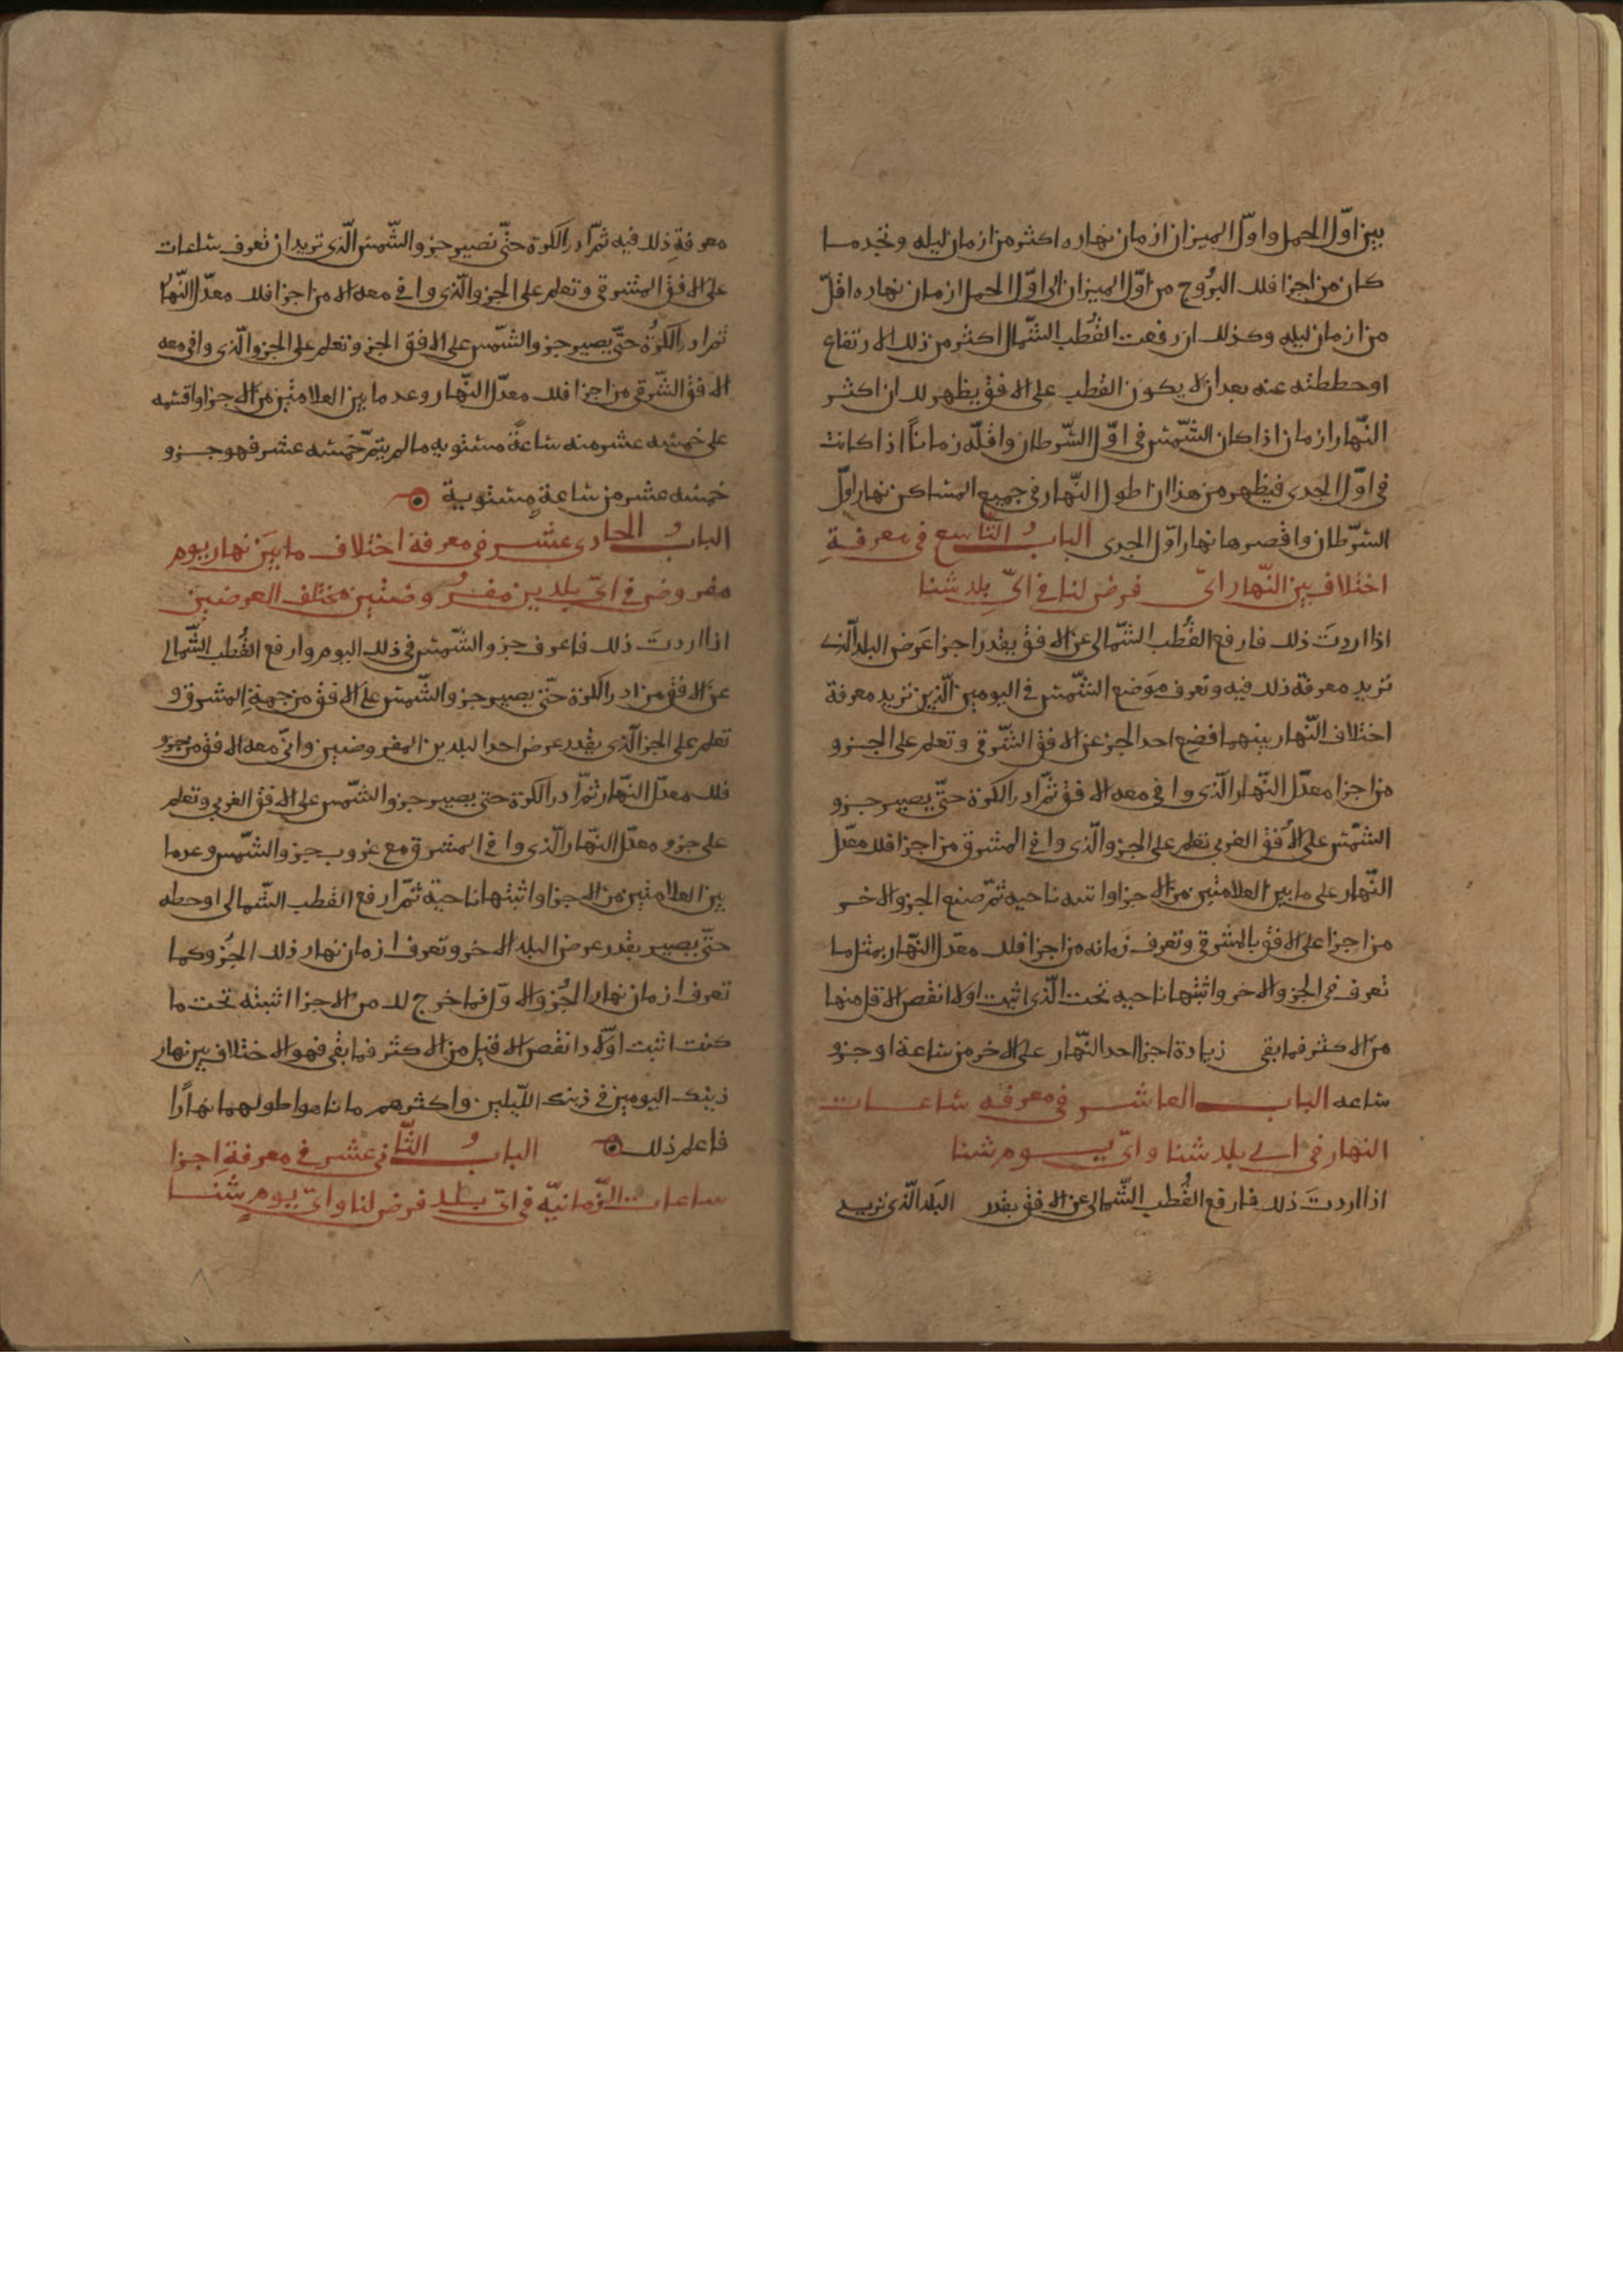 بين اوّل الحمل واوّل الميزان ازمان نهاره اكثر من ازمان ليله وتجد ما
كان من اجزا فلك البرُوج من اوّل الميزان الى اوّل الحمل ازمان نهاره اقلّ
من ازمان ليله وكذلك ان رفعت القُطب الشّمال اكثر من ذلك الارتفاع
او حططته عنه بعد ان لا يكون القطب على الافق يظهر لك ان اكثر
النّهار ازمان اذا كان الشّمس في اوّل السّرطان واقلّه زماناً اذا كانت
في اوّل الجدى فيظهر من هذا ان اطول النّهار في جميع المساكن نهار اوّل
السّرطان واقصرها نهار اوّل الجدى البابُ التّاسع في معرفةِ
اختلاف بين النّهار اىّ فرض لنا في اىّ بلد شئنا
اذا اردتَ ذلك فارفع القُطب الشّمالى عن الافق بقدر اجزا عَرض البلد الّذى
تريد معرفة ذلك فيه وتعرف موَضع الشّمس في اليومين الّذين تريد معرفة
اختلاف النّهار بينهما فضع احد الجز عن الافق الشّرقى وتعلم على الجزو
من اجزا معدّل النّهار الّذى وافى معه الافق ثمّ ادر الكرة حتّى يصير جزو
الشّمس على الاُفق الغربى تعلم على الجزو الّذى وافى المشرق من اجزا فلك معدّل
النّهار على ما بين العلامتين من الاجزا واثبته ناحيه ثمّ صنع الجزو الاخر
من اجزا على الافق بالمشرقى وتعرف زمانه من اجزا فلك معدّل النّهار بمثل ما
تعرف في الجزو الاخر واثبتها ناحيه تحت الّذى اثبت اولا انقص الاقل منها
من الاكثر فما بقى زيادة اجزا احد النّهار على الاخر من ساعة او جزو
ساعه الباب العاشر في معرفه ساعات
النهار في اى بلد شئنا واىّ يوم شئنا
اذا اردتَ ذلك فارفع القُطب الشّمالى عن الافق بقدر البَلد الّذى تريد
معرفةِ ذلك فيه ثمّ ادر الكرة حتّى تصير جزو الشّمس الّذى تريد ان تعرف ساعات
على الافق المشرقى وتعلم على الجزو الّذى وافى معه الا من اجزا فلك معدّل النّهار
ثم ادر الكرة حتّى يصير جزو الشّمس على الافق الجز وتعلم على الجزو الّذى وافى معه
الافق الشّرقى من اجزا فلك معدّل النّهار وعد ما بين العلامتين من الاجزا واقسمه
على خمسه عشر منه ساعةً مستويه ما لم يتمّ خَمسه عشر فهو جزو
خمسه عشر من ساعةٍ مستوية
البابُ الحادى عشر في معرفة اختلاف ما بَين نهار يوم
مفروض في اىّ بلدين مفروضتين مختلف العرضين
اذا اردتَ ذلك فاعرف جزو الشّمس في ذلك اليوم وارفع القُطب الشّمالى
عن الافق من ادر الكرة حتّى يصير جزو الشّمس على الافق من جهةِ المشرق و
تعلم على الجز الّذى بقدر عرض احد البلدين المفروضين واىّ معه الافق من جزو
فلك معدّل النّهار ثمّ ادر الكرة حتى يصير جزو الشّمس على الافق الغربى وتعلم
على جزو معدّل النّهار الّذى وافى المشرق مع غروب جزو الشّمس وعد ما
بين العلامتين من الاجزا واثبتها ناحية ثمّ ارفع القطب الشّمالى او حطه
حتّى يصير بقدر عرض البلد الاخر وتعرف ازمان نهار ذلك الجُزو كما
تعرف ازمان نهار الجُزو الاوّل فما خرج لك من الاجزا اثبته تحت ما
كنت اثبت اوّلا وانقص الاقل من الاكثر فما بقى فهو الاختلاف بين نهار
ذينك اليومين في ذينك اللّيلين واكثرهم مانا هو اطولهما نهارًا
فاعلم ذلك البابُ الثّانى عشر في معرفةِ اجزا
ساعات الزّمانيّه في اىّ بلد فرض لنا واىّ يوم شئنا